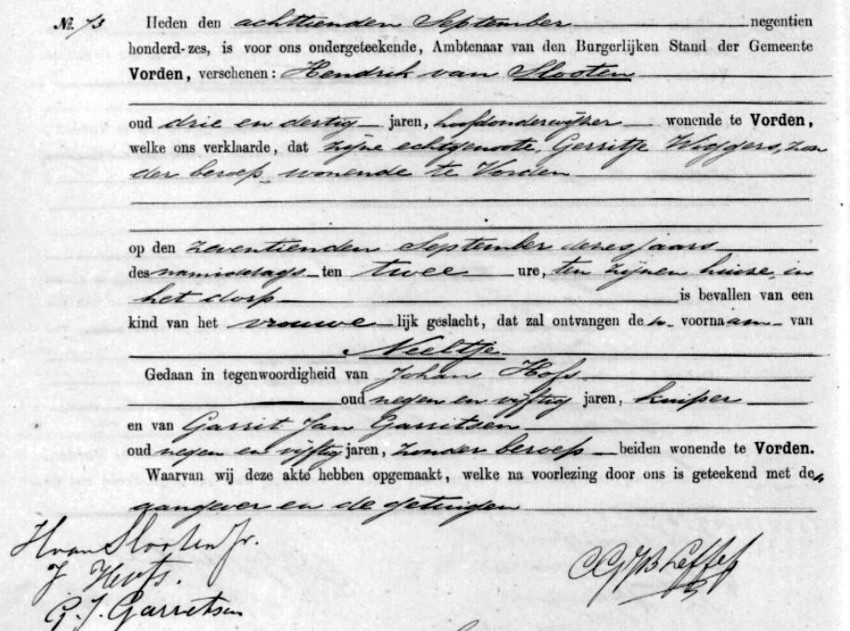 No. 73 Heden den achttienden September negentien
honderd-zes, is voor ons ondergeteekende, Ambtenaar van den Burgerlijken Stand der Gemeente
Vorden, verschenen: Hendrik van Slooten
oud drie en dertig jaren, hoofdonderwijzer wonende te Vorden,
welke ons verklaarde, dat zijne echtgenoote, Gerritje Wiggers, zon
der beroep, wonende te Vorden
op den zeventienden September dezes jaars
des namiddags ten twee ure, ten zijnen huize, in
het dorp is bevallen van een
kind van het vrouwelijk geslacht, dat zal ontvangen den voornaam van
Neeltje
Gedaan in tegenwoordigheid van Johan Hofs
oud negen en vijftig jaren, kuiper
en van Garrit Jan Garritsen
oud negen en vijftig jaren, zonder beroep beiden wonende te Vorden.
Waarvan wij deze akte hebben opgemaakt, welke na voorlezing door ons is geteekend met den
aangever en de getuigen
H van Slooten Jr.
J Hoofs.
G. J. Garretsen